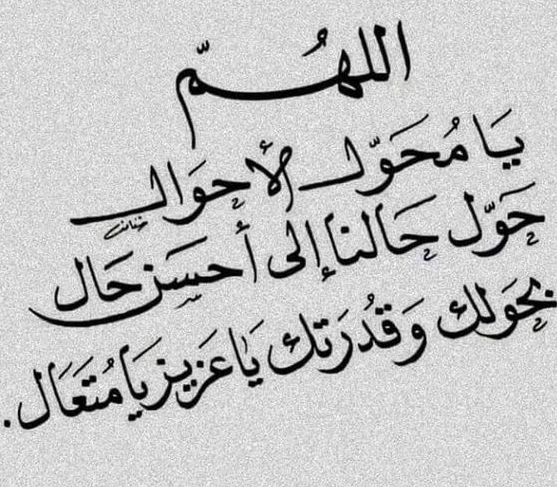 اللهُمّ
يَا مُحَوّل الأحوَال
حَوّل حَالنا إلى أحسَن حَال
بحَولك وَقدُرَتك يَا عَزيز يَا مُتعَال.